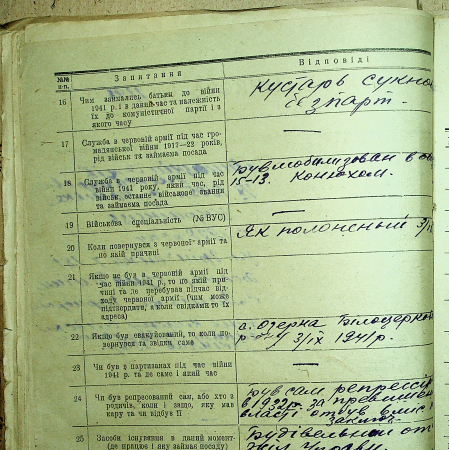 №№ п-п.
Запитання
Відповіді
16 Чим займались батьки до війни
1941 р. і в даний час та належність
їх до комуністичної партії і з
якого часу
Кустарь сукно
безпарт.
17 Служба в червоній армії під час гро-
мадянської війни 1917—22 років,
рід військ та займаєма посада
—
18 Служба в червоній армії під час
війни 1941 року, який час, рід
військ, останнє військове звання
та займаєма посада
Був мобилизован в
15-13. Конюхом.
19 Військова спеціальність (№ ВУС)
—
20 Коли повернувся з червоної армії та
по якій причині
Як полоненый 3/
21 Якщо не був в червоній армії під
час війни 1941 р., то по якій при-
чині та де перебував підчас від-
ходу червоної армії (чим може
підтвердити, а коли свідками то їх
адреса)
22 Якщо був евакуйований, то коли по-
вернувся та звідки саме
с. Озерна Білоцерков
р-ну 3/ІХ 1941 р.
23 Чи був в партизанах під час війни
1941 р. та де саме і який час
—
24 Чи був репресований сам, або хто з
родичів, коли і защо, яку мав
кару та чи відбув її
Був сам репресі
в 1932 р. за превишен
власті
25 Засоби існування в даний момент
(де працює і яку займає посаду)
Будівельний от